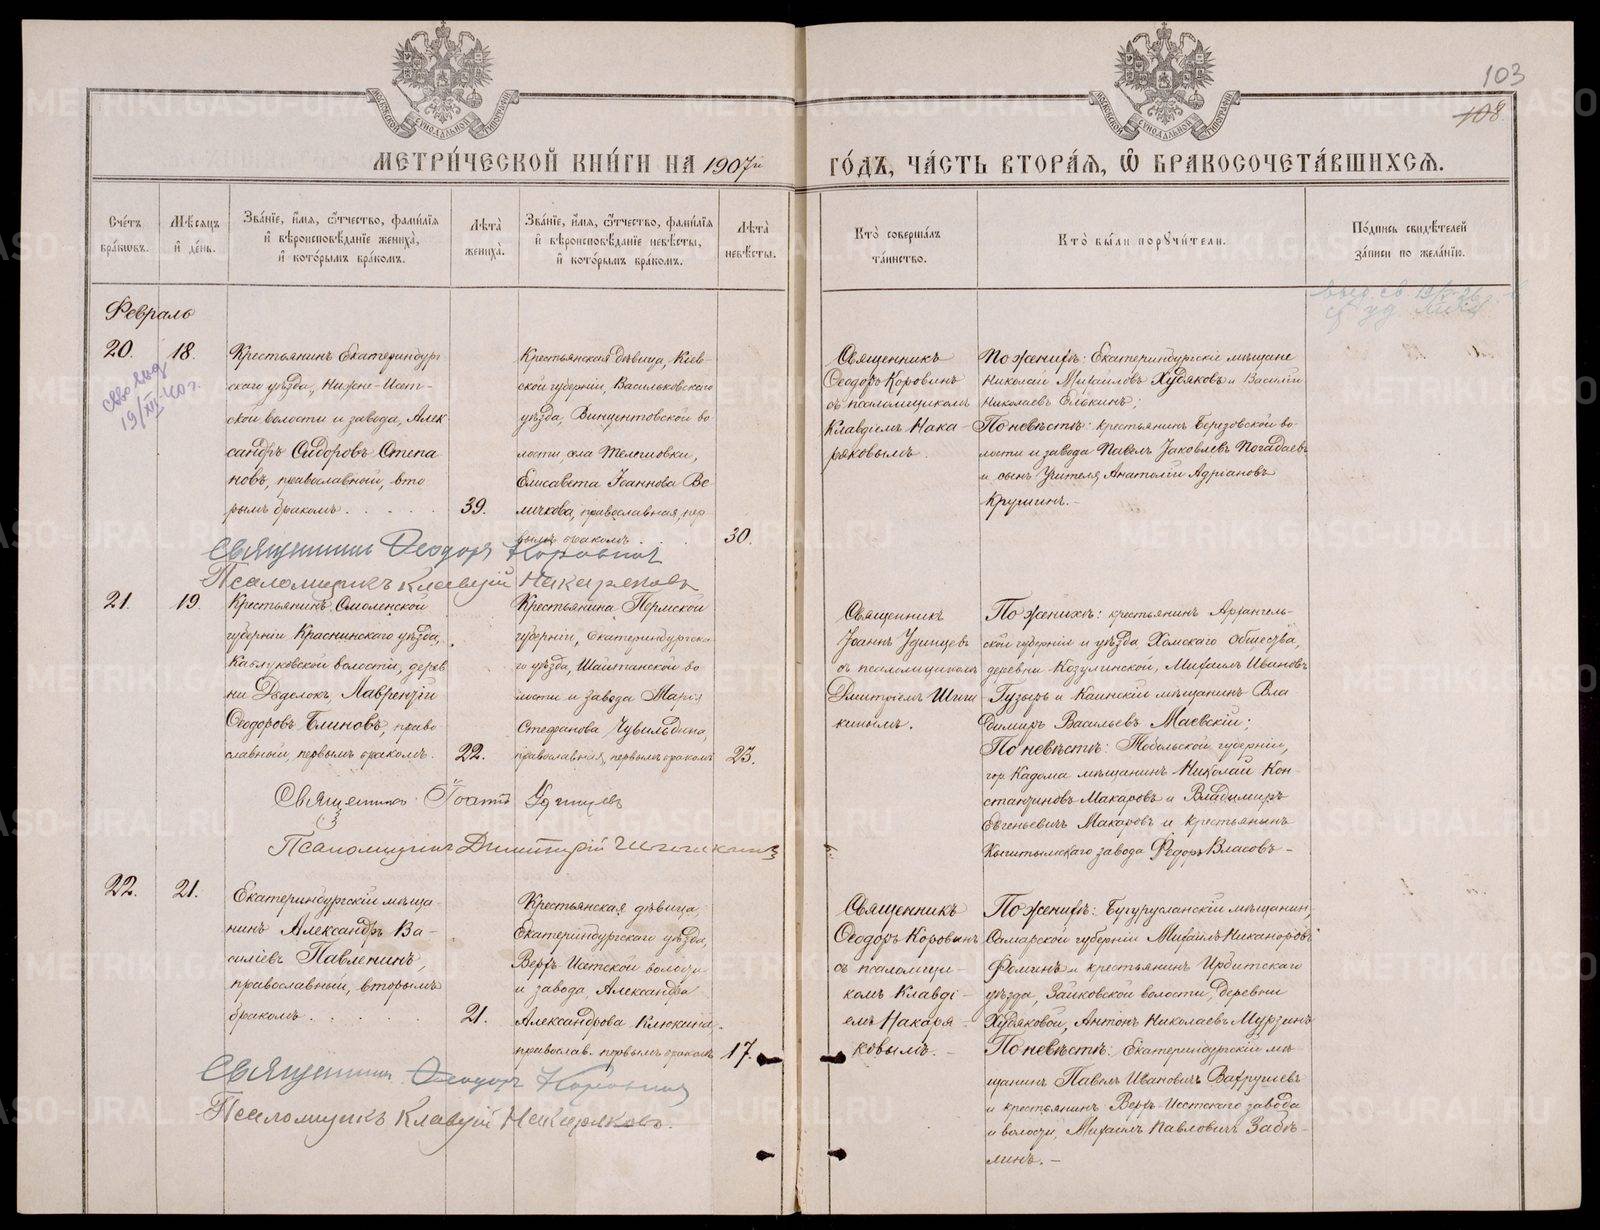 103
108
МЕТРИ́ЧЕСКОЙ КНИ́ГИ НА 1907й ГО́ДЪ, ЧА́СТЬ ВТОРА́Я, Ѽ БРАКОСОЧЕТА́ВШИХСЯ.
Сче́тъ бра́ковъ.
Мѣ́сяцъ и҆ де́нь.
Зва́нїе, и҆́мя, ѻ҆́тчество, фами́лїя и҆ вѣроисповѣ́данїе жениха̀, и҆ кото́рымъ бра́комъ.
Лѣта̀ жениха̀.
Зва́нїе, и҆́мя, ѻ҆́тчество, фами́лїя и҆ вѣроисповѣ́данїе невѣ́сты, и҆ кото́рымъ бра́комъ.
Лѣта̀ невѣ́сты.
Кто̀ соверша́лъ та́инство.
Кто̀ бы́ли порꙋчи́тели.
По́дпись свидѣ́телей за́писи по жела́нїю.
Февраль
20.
18.
19/XII-40 г.
Крестьянинъ Екатеринбург
скаго уѣзда, Нижне-Исет-
ской волости и завода, Алек
сандръ Сидоровъ Степа
новъ, православный, вто
рымъ бракомъ
39.
Крестьянская дѣвица, Кіев
ской губерніи, Васильковскаго
уѣзда, Винцентовской во
лости, села
Елисавета Іоаннова Ве
личкова, православная, пер
вымъ бракомъ
30.
Священникъ
Ѳеодоръ Коровинъ
съ псаломщикомъ
Клавдіемъ Нака-
ряковымъ.
По женихѣ: Екатеринбургскіе мѣщане
Николай Михаиловъ Худяковъ и Василій
Николаевъ Елькинъ;
По невѣстѣ: крестьянинъ Березовской во
лости и завода Павелъ Яковлевъ Погадаевъ
и сынъ учителя Анатолій Адріановъ
Священникъ Ѳеодоръ Коровинъ
Псаломщикъ Клавдій Накаряковъ
21.
19.
Крестьянинъ Смоленской
губерніи Краснинскаго уѣзда,
волости, дерев
ни Дѣделокъ, Лаврентій
Ѳеодоровъ Блиновъ, право
славный, первымъ бракомъ.
22.
Крестьянина Пермской
губерніи, Екатеринбургска
го уѣзда, Шайтанской во
лости и завода Марія
Стефанова Чувильдина,
православная, первымъ бракомъ
23.
Священникъ
Іоаннъ Удинцевъ
съ псаломщикомъ
Дмитріемъ Шиши
кинымъ.
По женихѣ: крестьянинъ Архангель-
ской губерніи и уѣзда Холмскаго общества,
деревни Козулинской, Михаилъ Ивановъ
Гузырь и Каинскій мѣщанинъ Вла
диміръ Васильевъ Маевскій;
По невѣстѣ: Тобольской губерніи,
гор. Кадома мѣщанинъ Николай Кон-
стантиновъ Макаровъ и Владиміръ
Евгеньевичъ Макаровъ и крестьянинъ
Кыштымскаго завода Ѳедоръ Власовъ –
Священникъ Іоаннъ Удинцевъ
Псаломщикъ Димитрій Шишикинъ
22.
21.
Екатеринбургскій мѣща-
нинъ Александръ Ва-
силіевъ Павленинъ,
православный, вторымъ
бракомъ
21.
Крестьянская дѣвица,
Екатеринбургскаго уѣзда,
Верхъ-Исетской волости
и завода, Александра
Александрова Клюкина,
православ. первымъ бракомъ
17.
Священникъ
Ѳеодоръ Коровинъ
съ псаломщи-
комъ Клавді-
емъ Накаря-
ковымъ. –
По женихѣ: Бугурусланскій мѣщанинъ,
Самарской губерніи Михаилъ Никаноровъ
Ѳоминъ и крестьянинъ Ирбитскаго
уѣзда, Зайковской волости, деревни
Худяковой, Антонъ Николаевъ Мурзинъ
По невѣстѣ: Екатеринбургскій мѣ-
щанинъ Павелъ Ивановичъ Вахрушевъ
и крестьянинъ Верхъ-Исетскаго завода
и волости, Михаилъ Павловичъ Забѣ-
линъ. –
Священникъ Ѳеодоръ Коровинъ
Псаломщикъ Клавдій Накаряковъ.